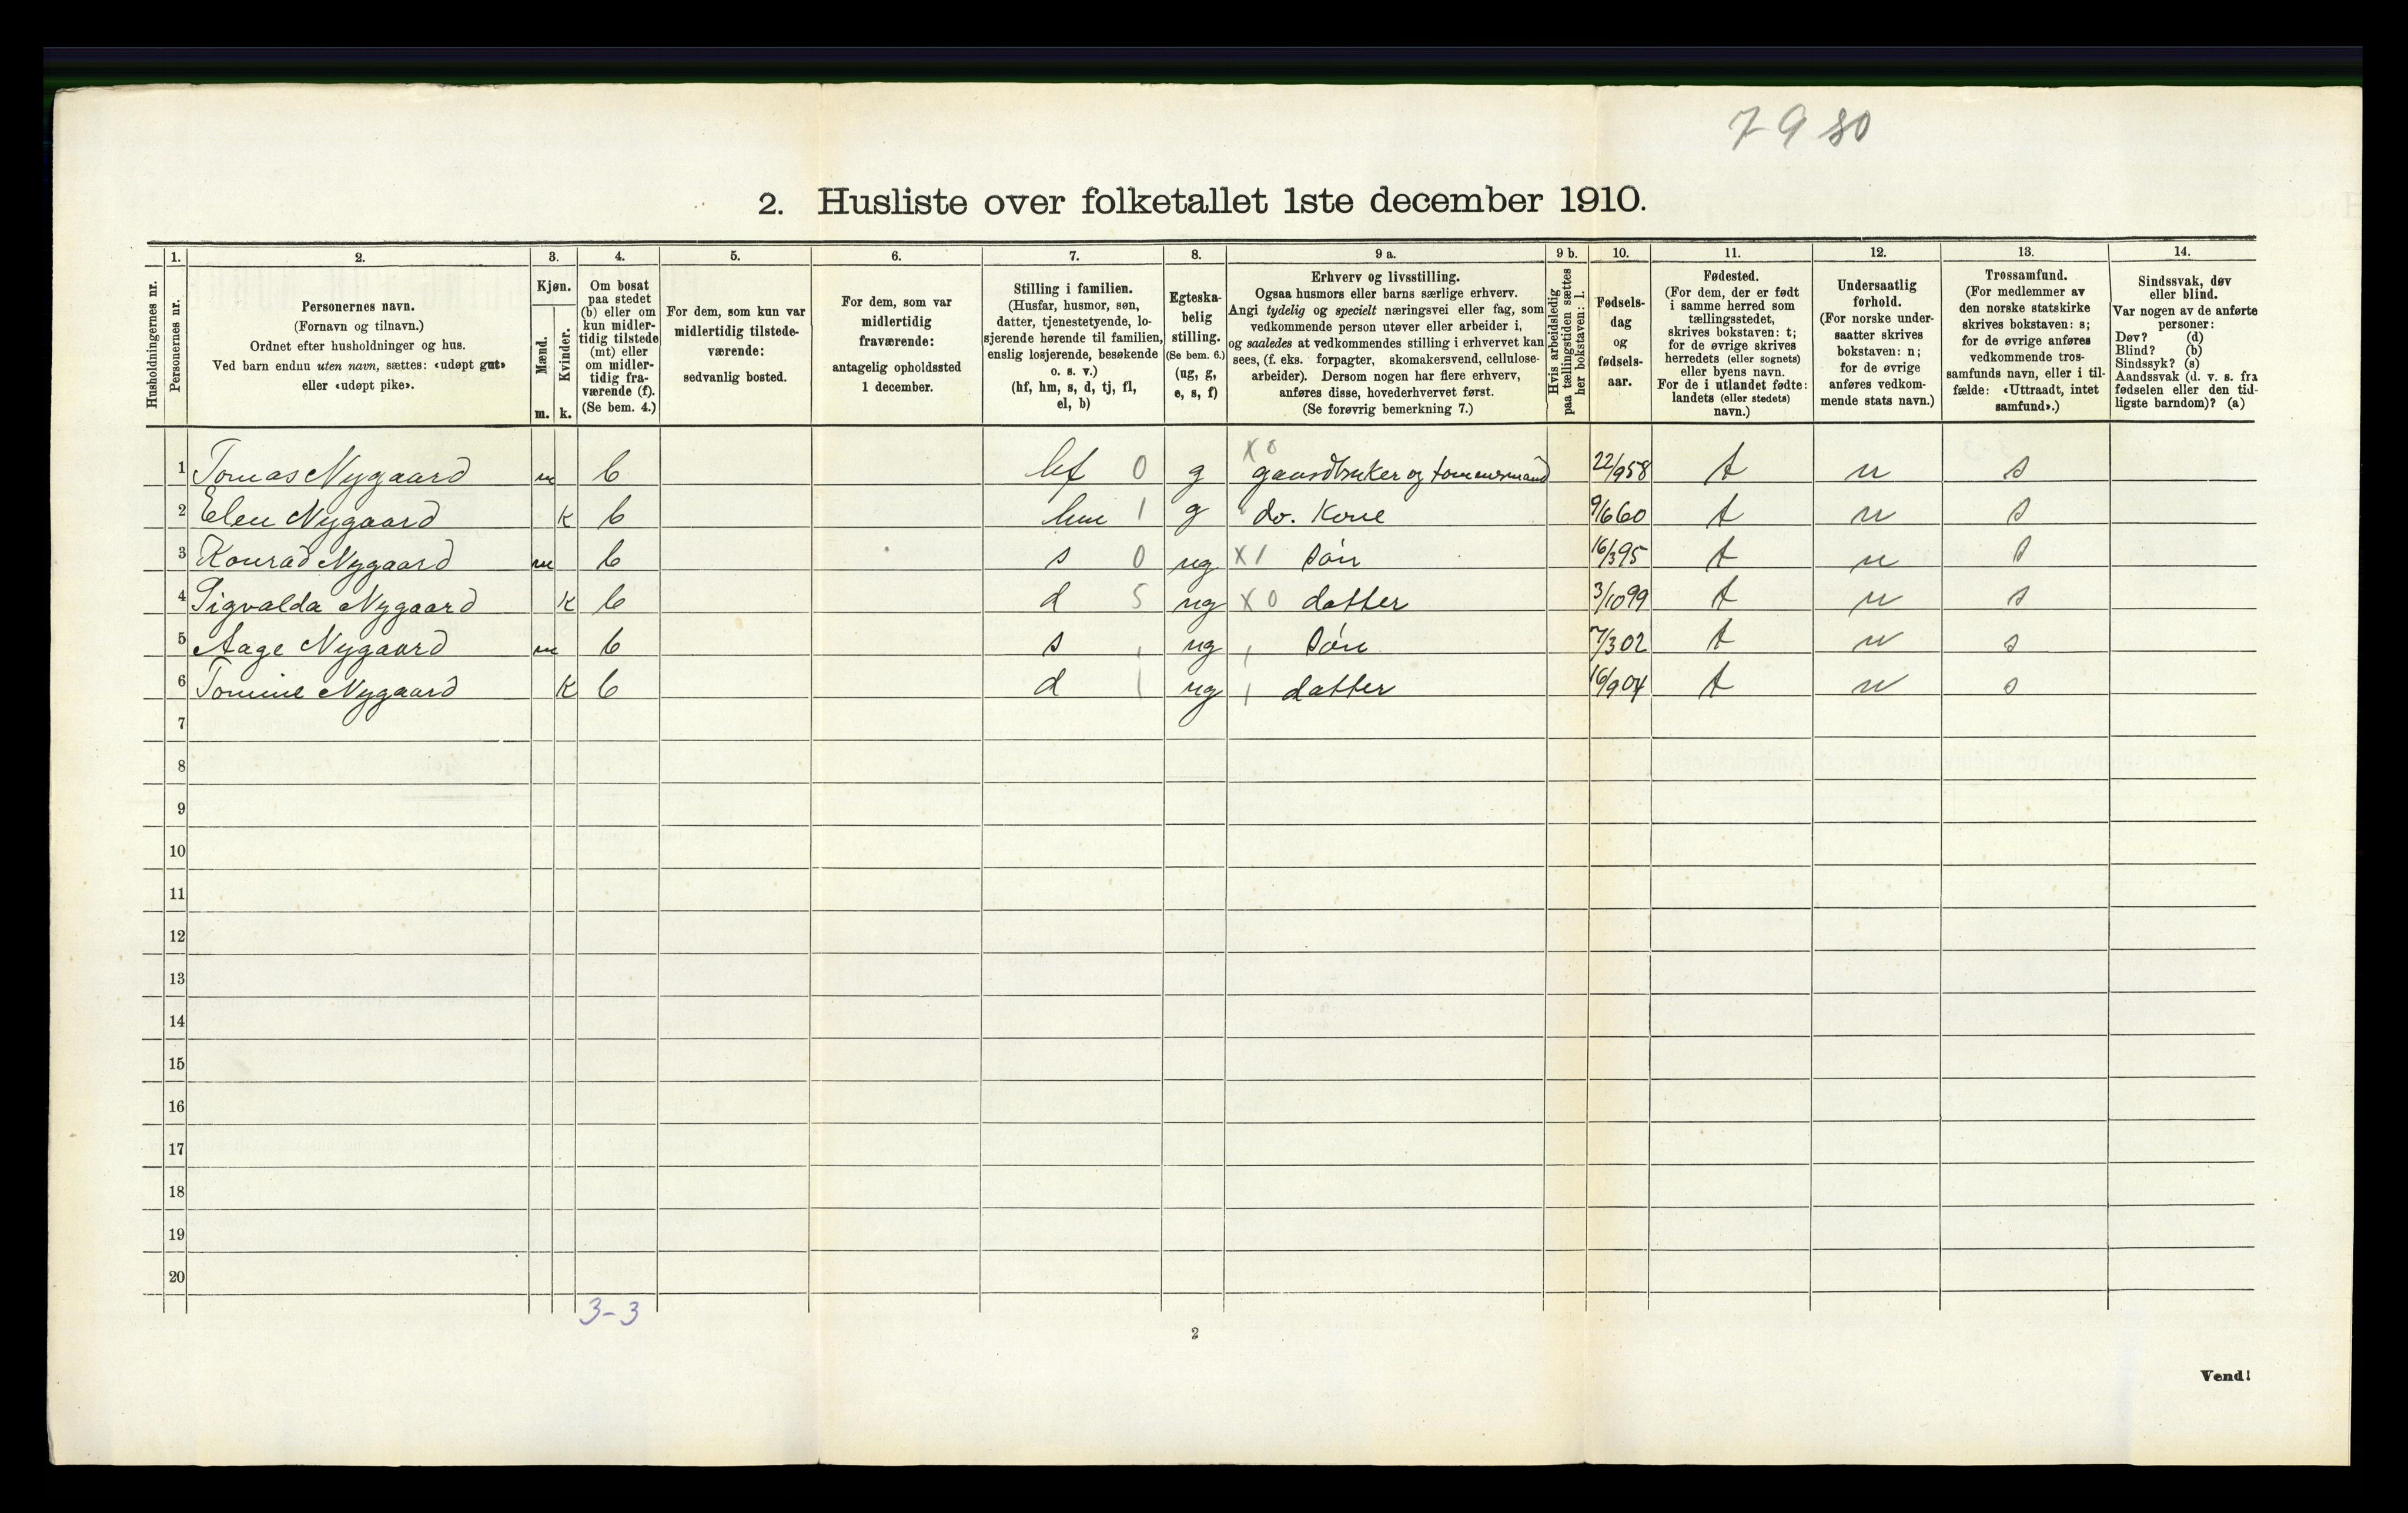 7980
2. Husliste over folketallet 1ste december 1910.
Husholdningernes nr.
1.
Personernes nr.
2.
Personernes navn.
(Fornavn og tilnavn.)
Ordnet efter husholdninger og hus.
Ved barn endnu uten navn, sættes: «udøpt gut»
eller «udøpt pike».
3.
Kjøn.
Mænd.
Kvinder.
m. k.
4.
Om bosat
paa stedet
(b) eller om
kun midler-
tidig tilstede
(mt) eller
om midler-
tidig fra-
værende (f).
(Se bem. 4.)
5.
For dem, som kun var
midlertidig tilstede-
værende:
sedvanlig bosted.
6.
For dem, som var
midlertidig
fraværende:
antagelig opholdssted
1 december.
7.
Stilling i familien.
(Husfar, husmor, søn,
datter, tjenestetyende, lo-
sjerende hørende til familien,
enslig losjerende, besøkende
o. s. v.)
(hf, hm, s, d, tj, fl,
el, b)
8.
Egteska-
belig
stilling.
(Se bem. 6.)
(ug, g,
e, s, f)
9 a.
Erhverv og livsstilling.
Ogsaa husmors eller barns særlige erhverv.
Angi tydelig og specielt næringsvei eller fag, som
vedkommende person utøver eller arbeider i,
og saaledes at vedkommendes stilling i erhvervet kan
sees, (f. eks. forpagter, skomakersvend, cellulose-
arbeider). Dersom nogen har flere erhverv,
anføres disse, hovederhvervet først.
(Se forøvrig bemerkning 7.)
9 b.
Hvis arbeidsledig
paa tællingstiden sættes
her bokstaven: l.
10.
Fødsels-
dag
og
fødsels-
aar.
11.
Fødested.
(For dem, der er født
i samme herred som
tællingsstedet,
skrives bokstaven: t;
for de øvrige skrives
herredets (eller sognets)
eller byens navn.
For de i utlandet fødte:
landets (eller stedets)
navn.)
12.
Undersaatlig
forhold.
(For norske under-
saatter skrives
bokstaven: n;
for de øvrige
anføres vedkom-
mende stats navn.)
13.
Trossamfund.
(For medlemmer av
den norske statskirke
skrives bokstaven: s;
for de øvrige anføres
vedkommende tros-
samfunds navn, eller i til-
fælde: «Uttraadt, intet
samfund».)
14.
Sindssvak, døv
eller blind.
Var nogen av de anførte
personer:
Døv? (d)
Blind? (b)
Sindssyk? (s)
Aandssvak (d. v. s. fra
fødselen eller den tid-
ligste barndom)? (a)
1 Tomas Nygaard m b hf 0 g X 0 gaardbruker og tømmermand 22/9 58 t n s
2 Elen Nygaard k b hm 1 g do. Kone 9/6 60 t n s
3 Konrad Nygaard m b s 0 ug X 1 søn 16/3 95 t n s
4 Sigvalda Nygaard k b d 5 ug X 0 datter 3/10 99 t n s
5 Aage Nygaard m b s ug søn 7/3 02 t n s
6 Tomine Nygaard k b d 1 ug datter 16/9 04 t n s
7
8
9
10
11
12
13
14
15
16
17
18
19
20
3-3
2
Vend!